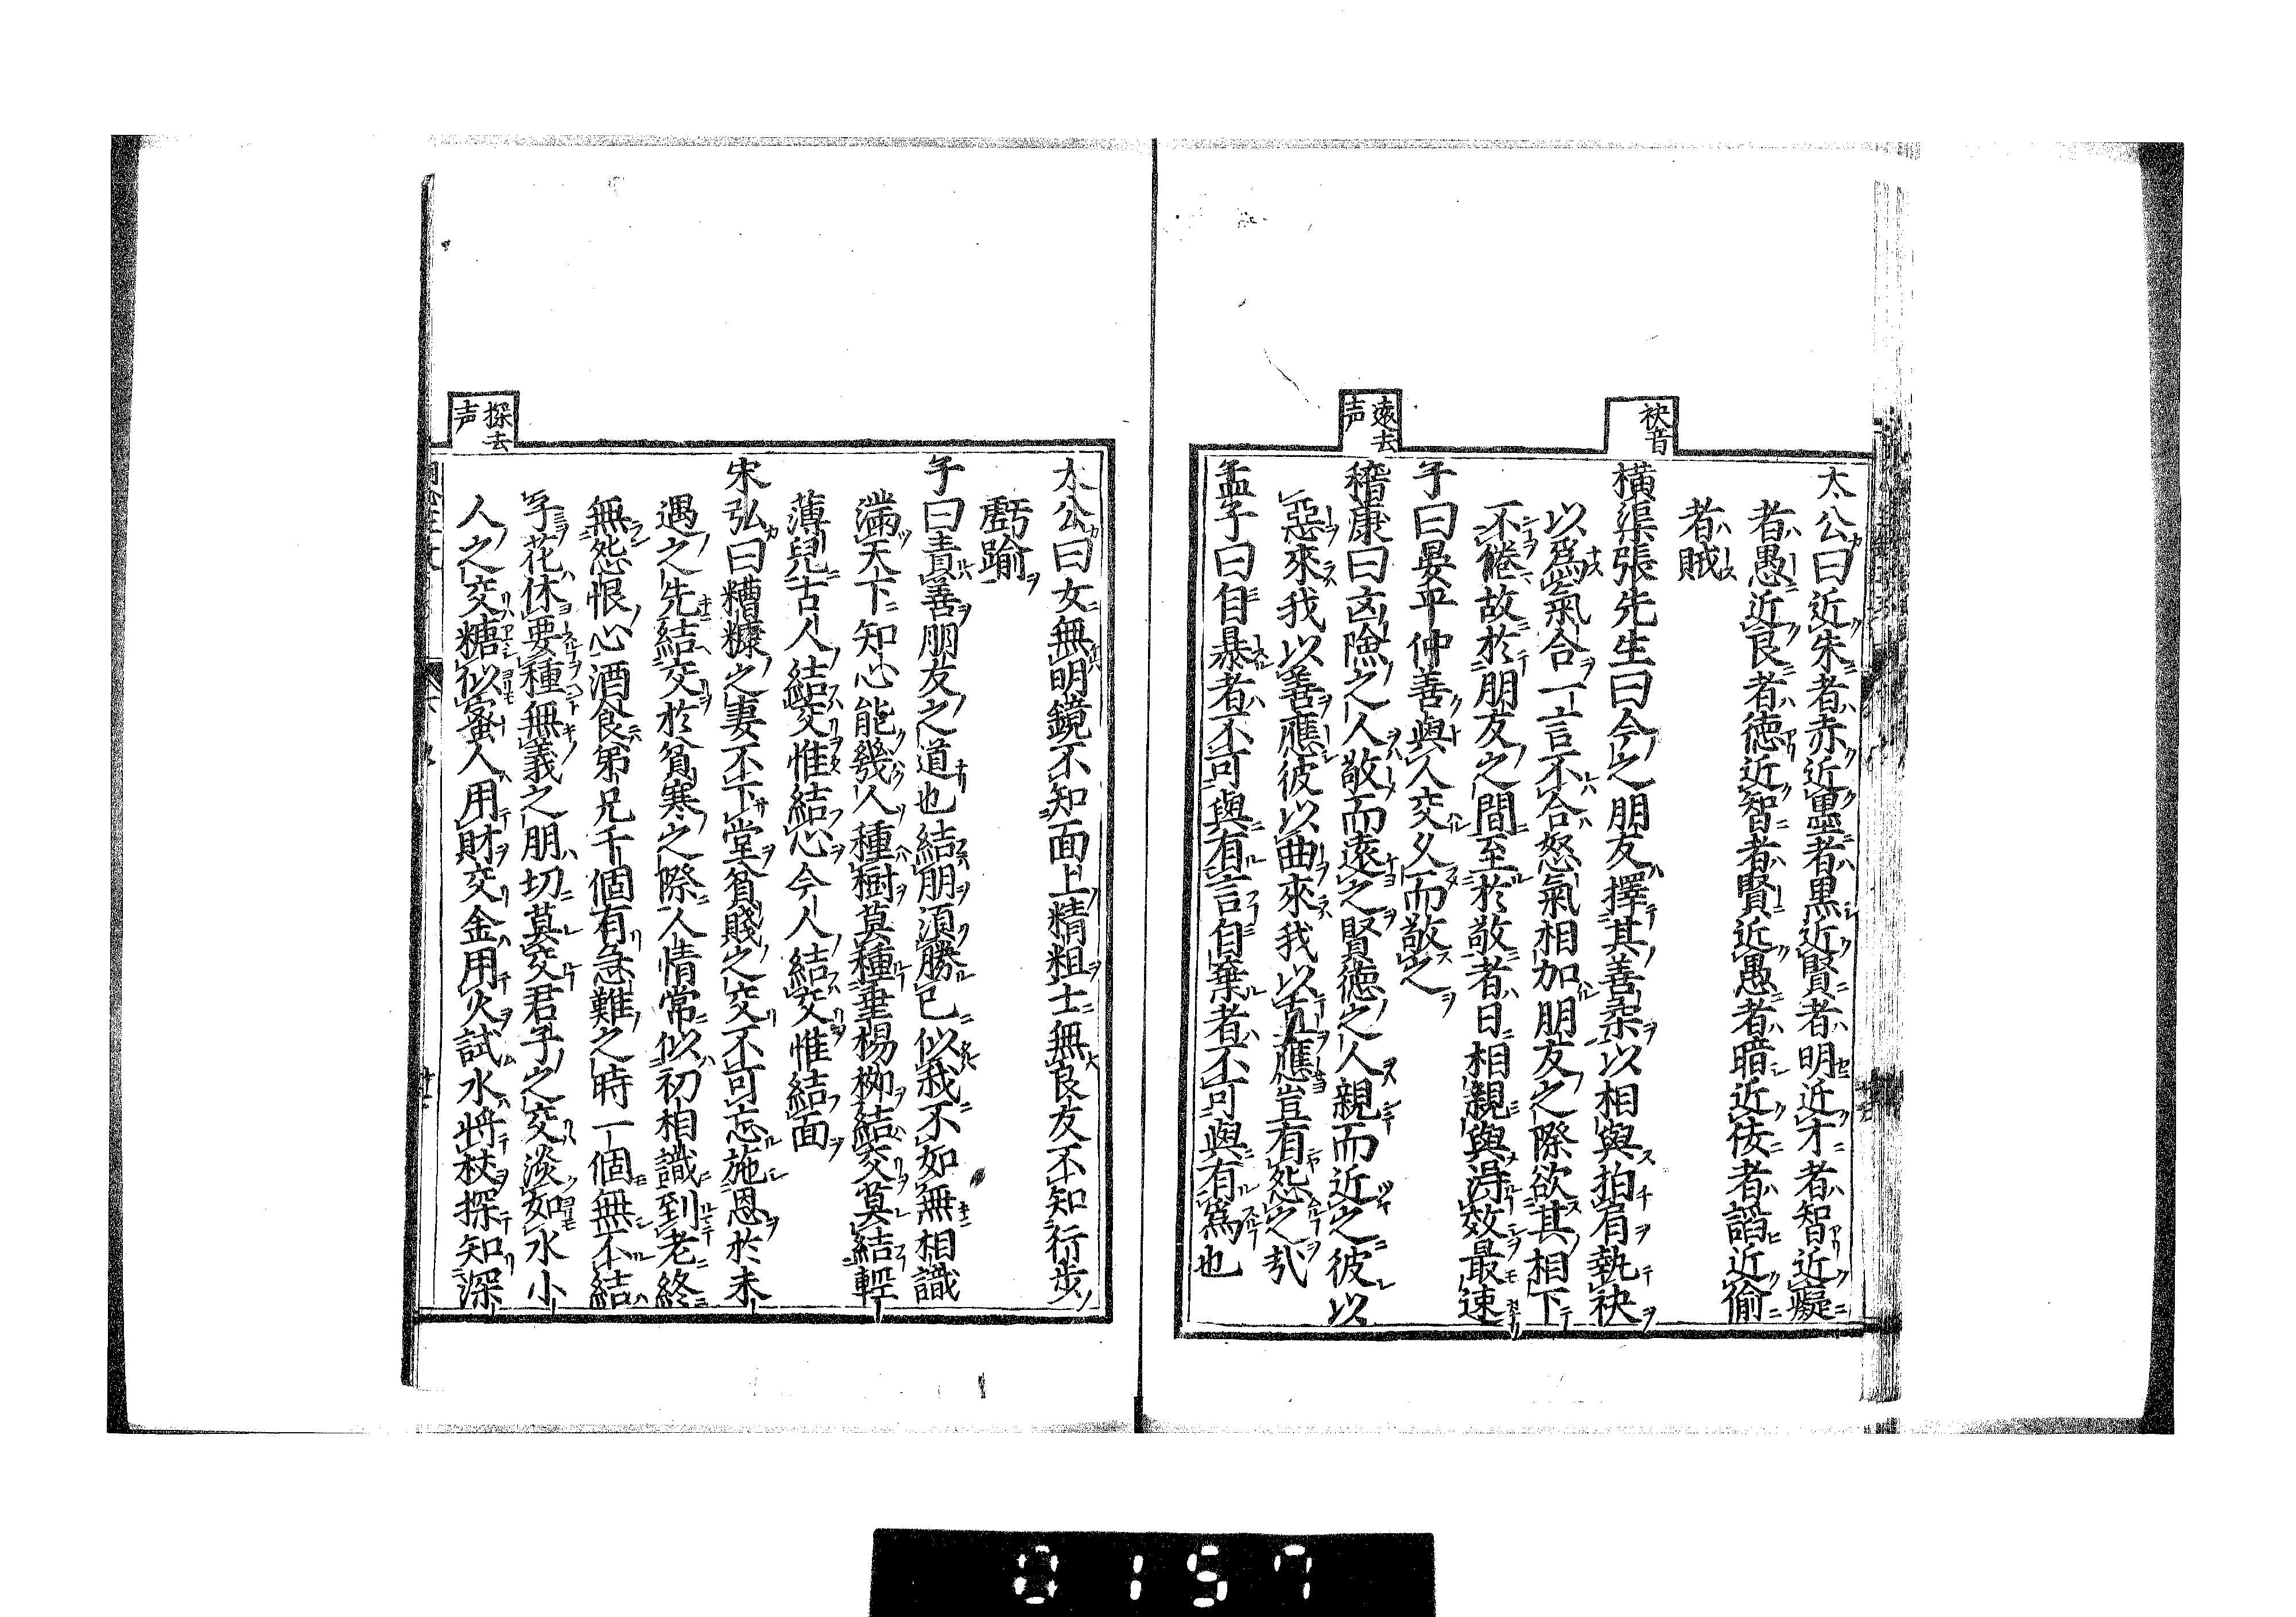 袂音
遠去
声
太公曰近朱者赤近墨者黒近賢者明近才者智近癡
者愚近良者徳近智者賢近愚者暗近佞者諂近偷
者賊
橫渠張先生曰今之朋友擇其善柔以相與拍肩執袂
以爲氣合一言不合怒氣相加朋友之際欲其相下
不倦故於朋友之間至於敬者日相親與淂效最速
子曰晏平仲善與人交久而敬之
稽康曰凶險之人敬而遠之賢徳之人親而近之彼以
惡來我以善應彼以曲來我以直應豈有怨之㦲
孟子曰自暴者不可與有言自棄者不可與有爲也
探去
声
太公曰女無明鏡不知面上精粗士無良友不知行步
虧踰
子曰責善朋友之道也結朋湏勝已似我不如無相識
滿天下知心能幾人種樹莫種垂楊栁結交莫結輕
薄兒古人結交惟結心今人結交惟結面
宋弘曰糟糠之妻不下堂貧賤之交不可忘施恩於未
遇之先結交於貧寒之際人情常似初相識到老終
無怨恨心酒食弟兄千個有急難之時一個無不結
子花休要種無義之朋切莫交君子之交淡如水小
人之交糖似蜜人用財交金用火試水將杖探知深
0157